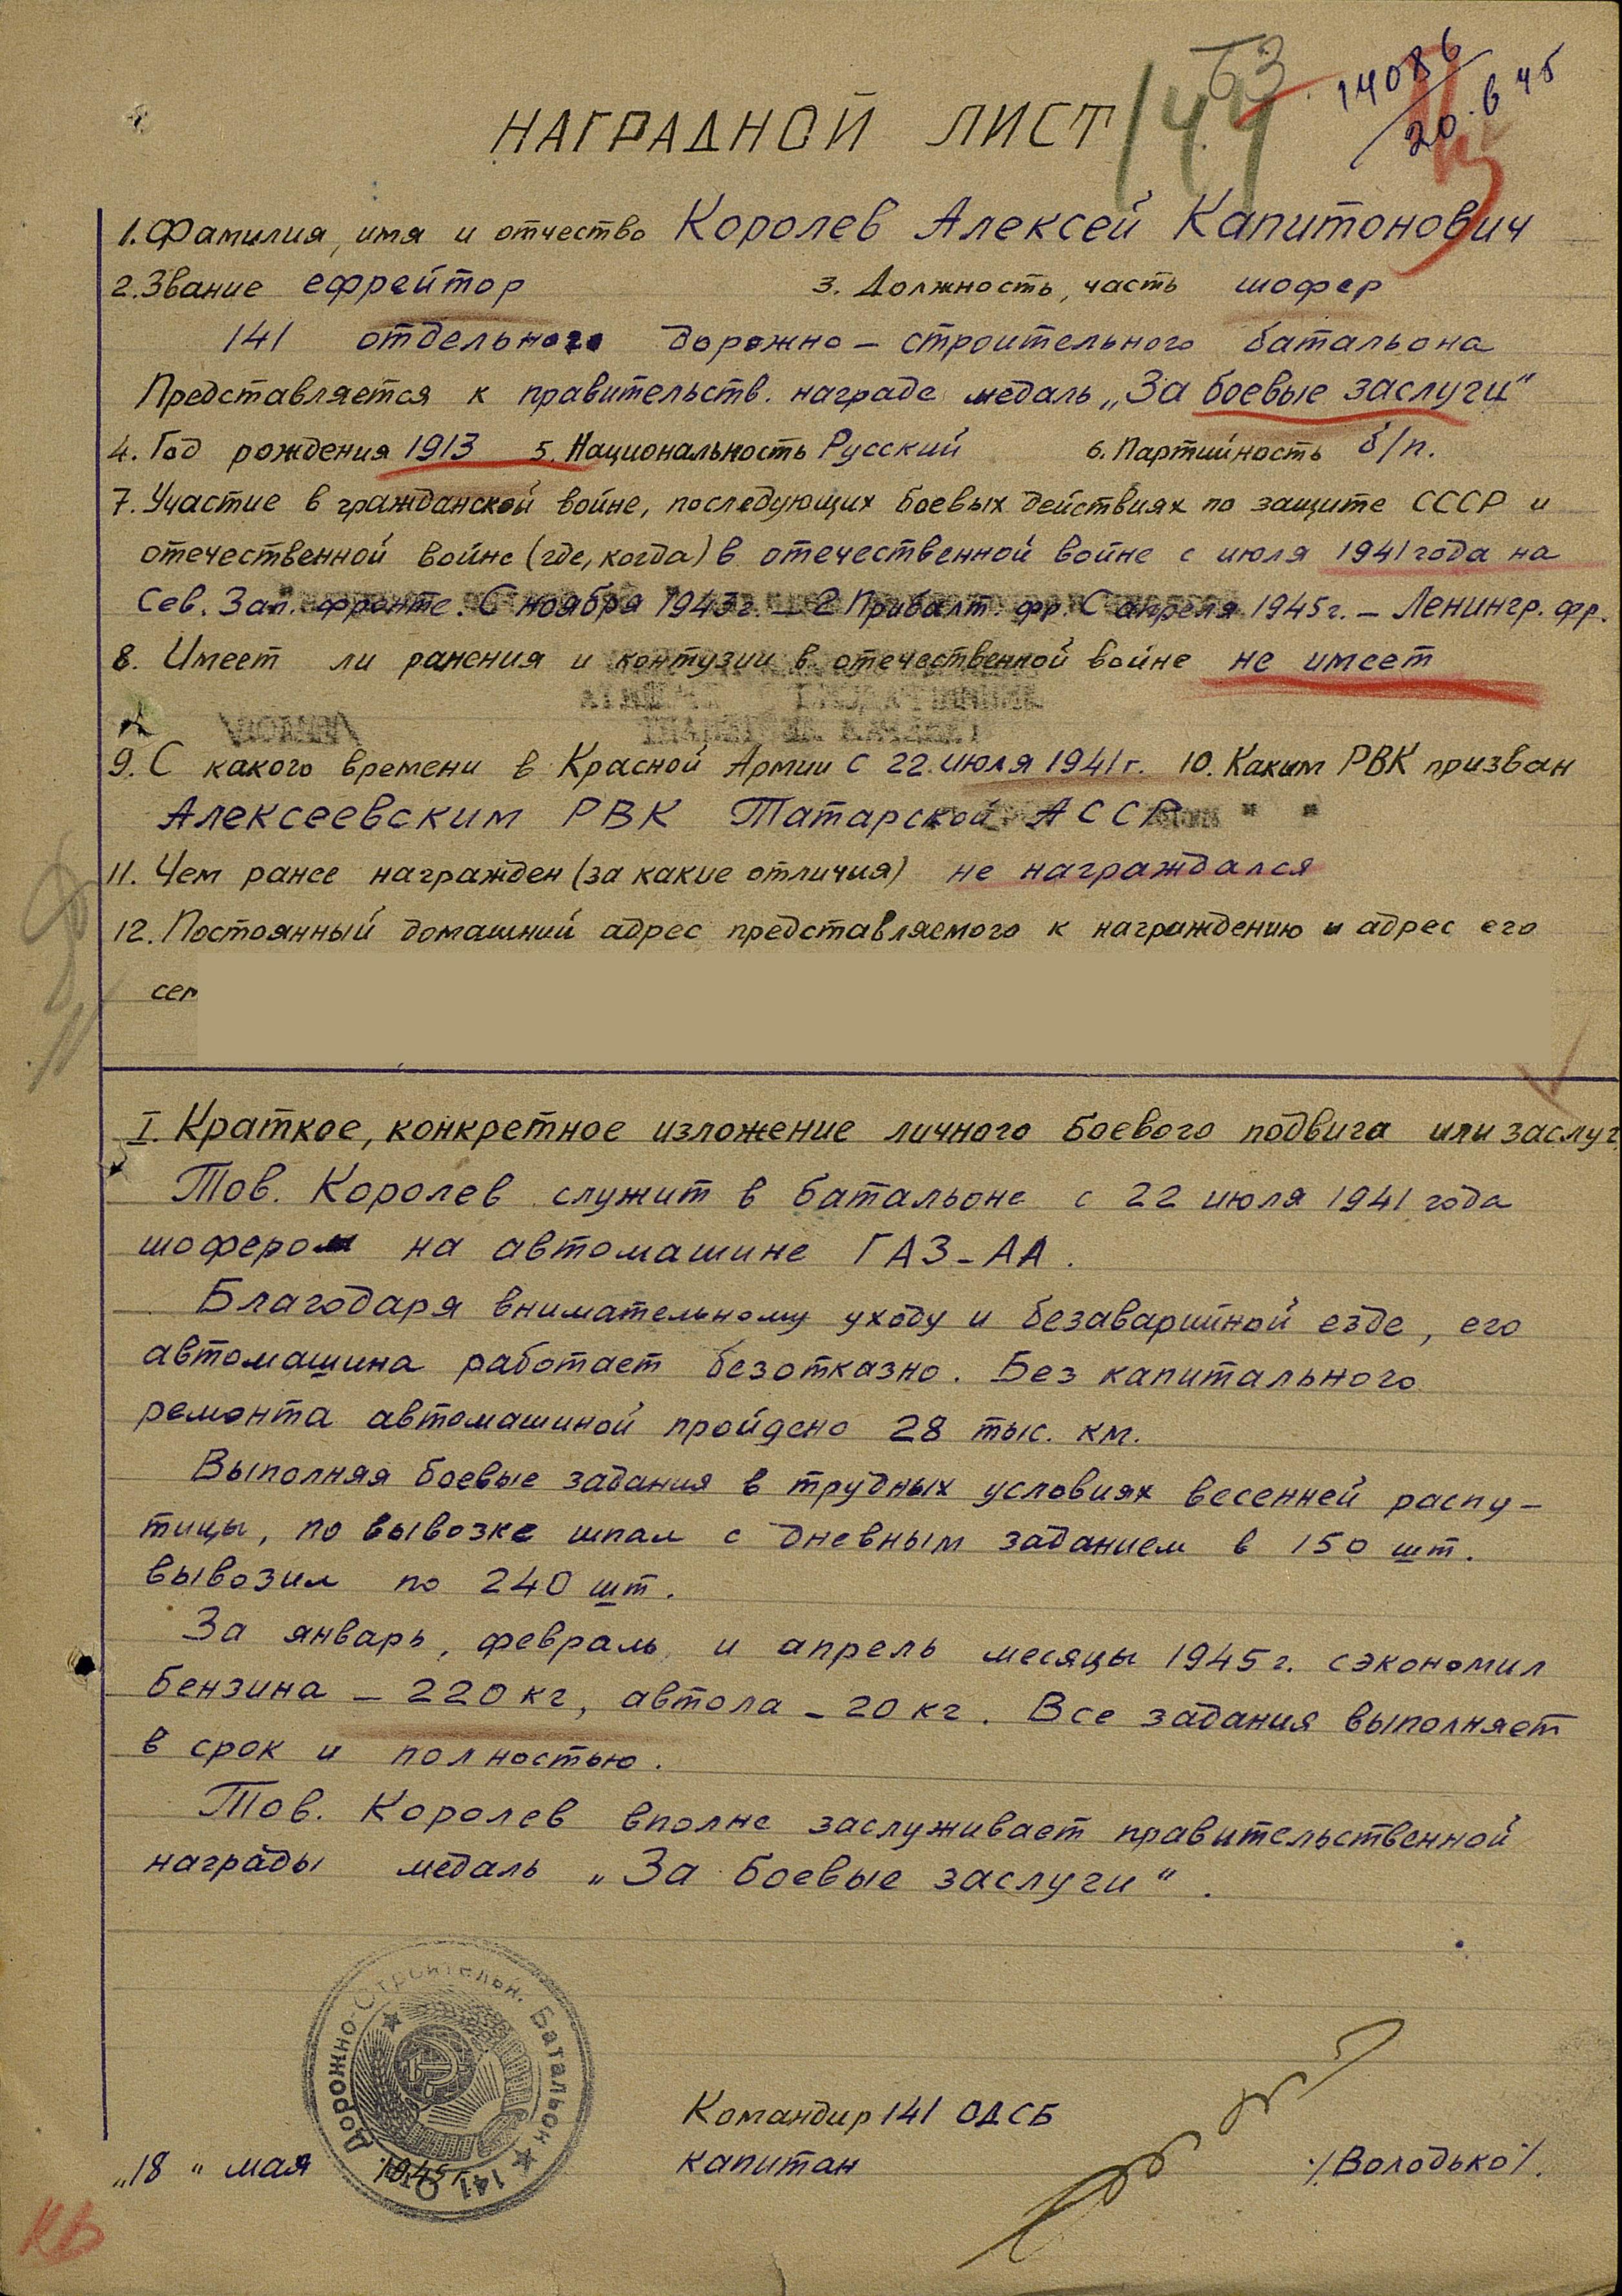 63
144
14086
20.6 45
НАГРАДНОЙ ЛИСТ
1. Фамилия, имя и отчество Королев Алексей Капитонович
2. Звание ефрейтор 3. Должность, часть шофер
141 отдельного дорожно-строительного батальона
Представляется к правительств. награде медаль „За боевые заслуги"
4. Год рождения 1913 5. Национальность Русский 6. Партийность б/п.
7. Участие в гражданской войне, последующих боевых действиях по защите СССР и
отечественной войне (где, когда) в отечественной войне с июля 1941 года на
Сев. Зап. фронте. С ноября 1943г. – 2 Прибалт. фр. С апреля 1945г. – Ленингр. фр.
8. Имеет ли ранения и контузии в отечественной войне не имеет
9. С какого времени в Красной Армии с 22 июля 1941г. 10. Каким РВК призван
Алексеевским РВК Татарской АССР
11. Чем ранее награжден (за какие отличия) не награждался
12. Постоянный домашний адрес представляемого к награждению и адрес его
I. Краткое, конкретное изложение личного боевого подвига или заслуг
Тов. Королев служит в батальоне с 22 июля 1941 года
шофером на автомашине ГАЗ-АА.
Благодаря внимательному уходу и безаварийной езде, его
автомашина работает безотказно. Без капитального
ремонта автомашиной пройдено 28 тыс. км.
Выполняя боевые задания в трудных условиях весенней распу-
тицы, по вывозке шпал с дневным заданием в 150 шт.
вывозил по 240 шт.
За январь, февраль, и апрель месяцы 1945г. сэкономил
бензина – 220 кг, автола – 20 кг. Все задания выполняет
в срок и полностью.
Тов. Королев вполне заслуживает правительственной
награды медаль „За боевые заслуги".
141 Отд. Дорожно-Строительн. Батальон
Командир 141 ОДСБ
„18" мая 1945г. капитан /Володько/.
КВ